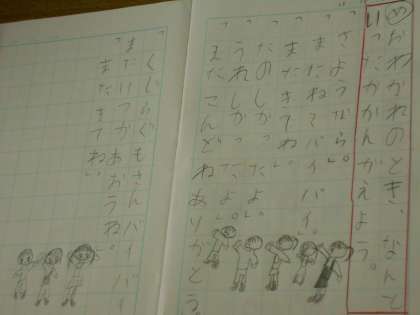 おわかれのとき、なんと
いったかかんがえよう。
「さようなら。」
「またねバイバイ。」
「またきてね
「たのしかったよ。」
「うれしかったよ。」
「またこんどねありがとう。
「くじらぐもさんバイバイ
「またいつかあおうね。
「またきてね。」